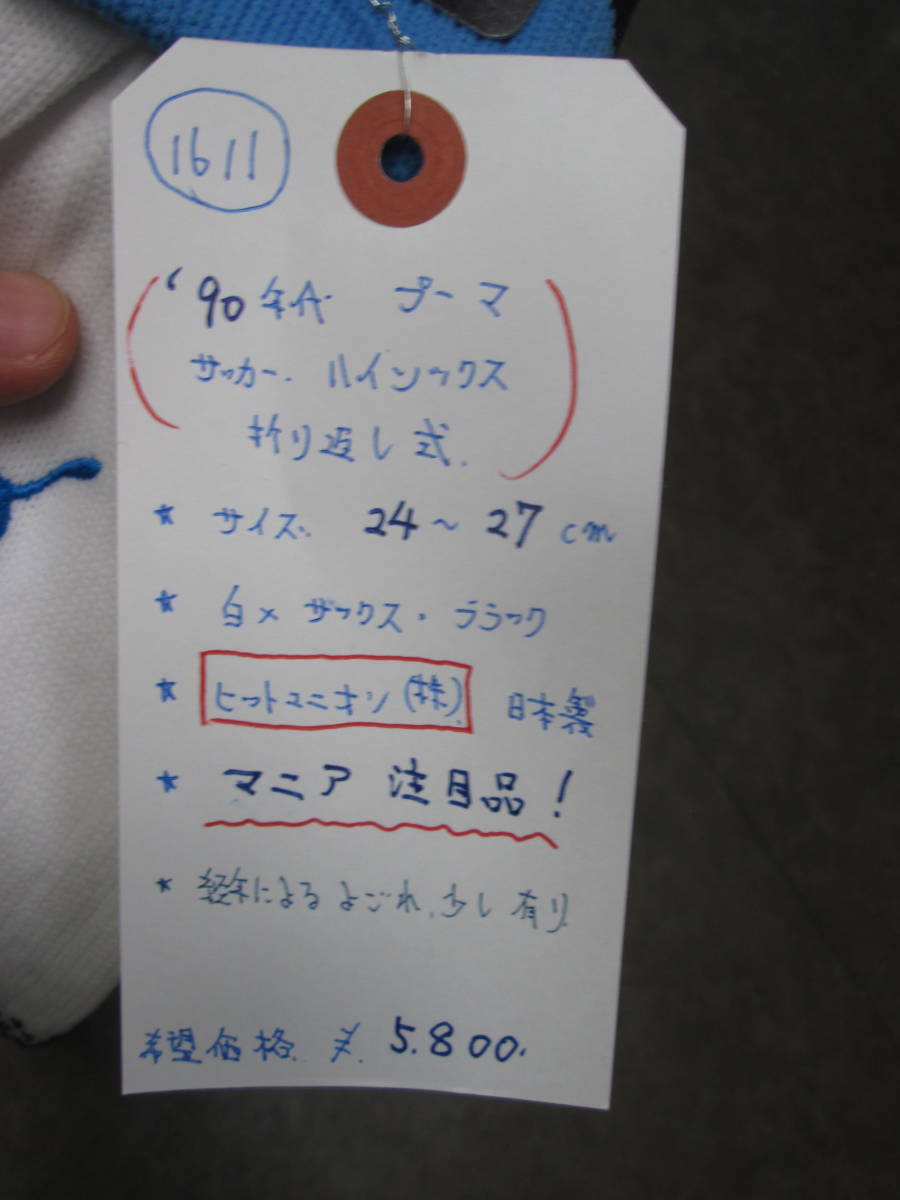 1611
'90年代 プーマ
サッカー. ハイソックス
折り返し式.
* サイズ. 24～27cm
* 白×ザックス・ブラック
* ヒットユニオン(株). 日本製
* マニア 注目品!
* 経年によるよごれ、少し有り.
希望価格. ¥. 5.800.